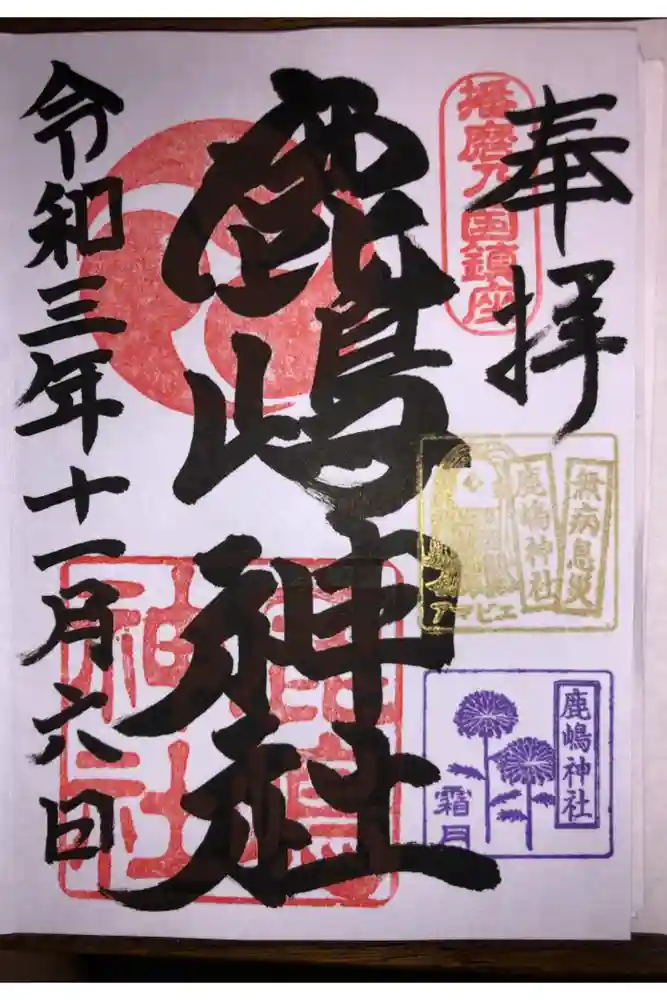 奉拝
播磨乃国鎮座
鹿嶋神社
鹿嶋神社
無病息災
鹿嶋神社
アマビエ
鹿嶋神社
霜月
令和三年十一月六日